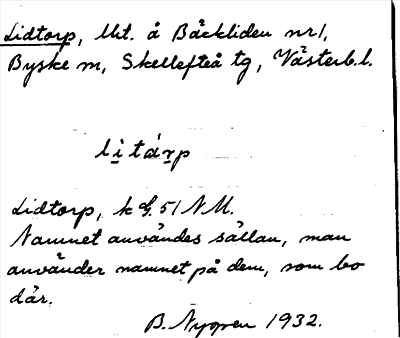 Lidtorp, lht. å Bäckliden nr 1,
Byske sn, Skellefteå tg, Västerb. l.
lìtár̲p
Lidtorp, k bl. 51 N M.
Namnet användes sällan, man
använder namnet på dem, som bo
där.
B. Nygren 1932.